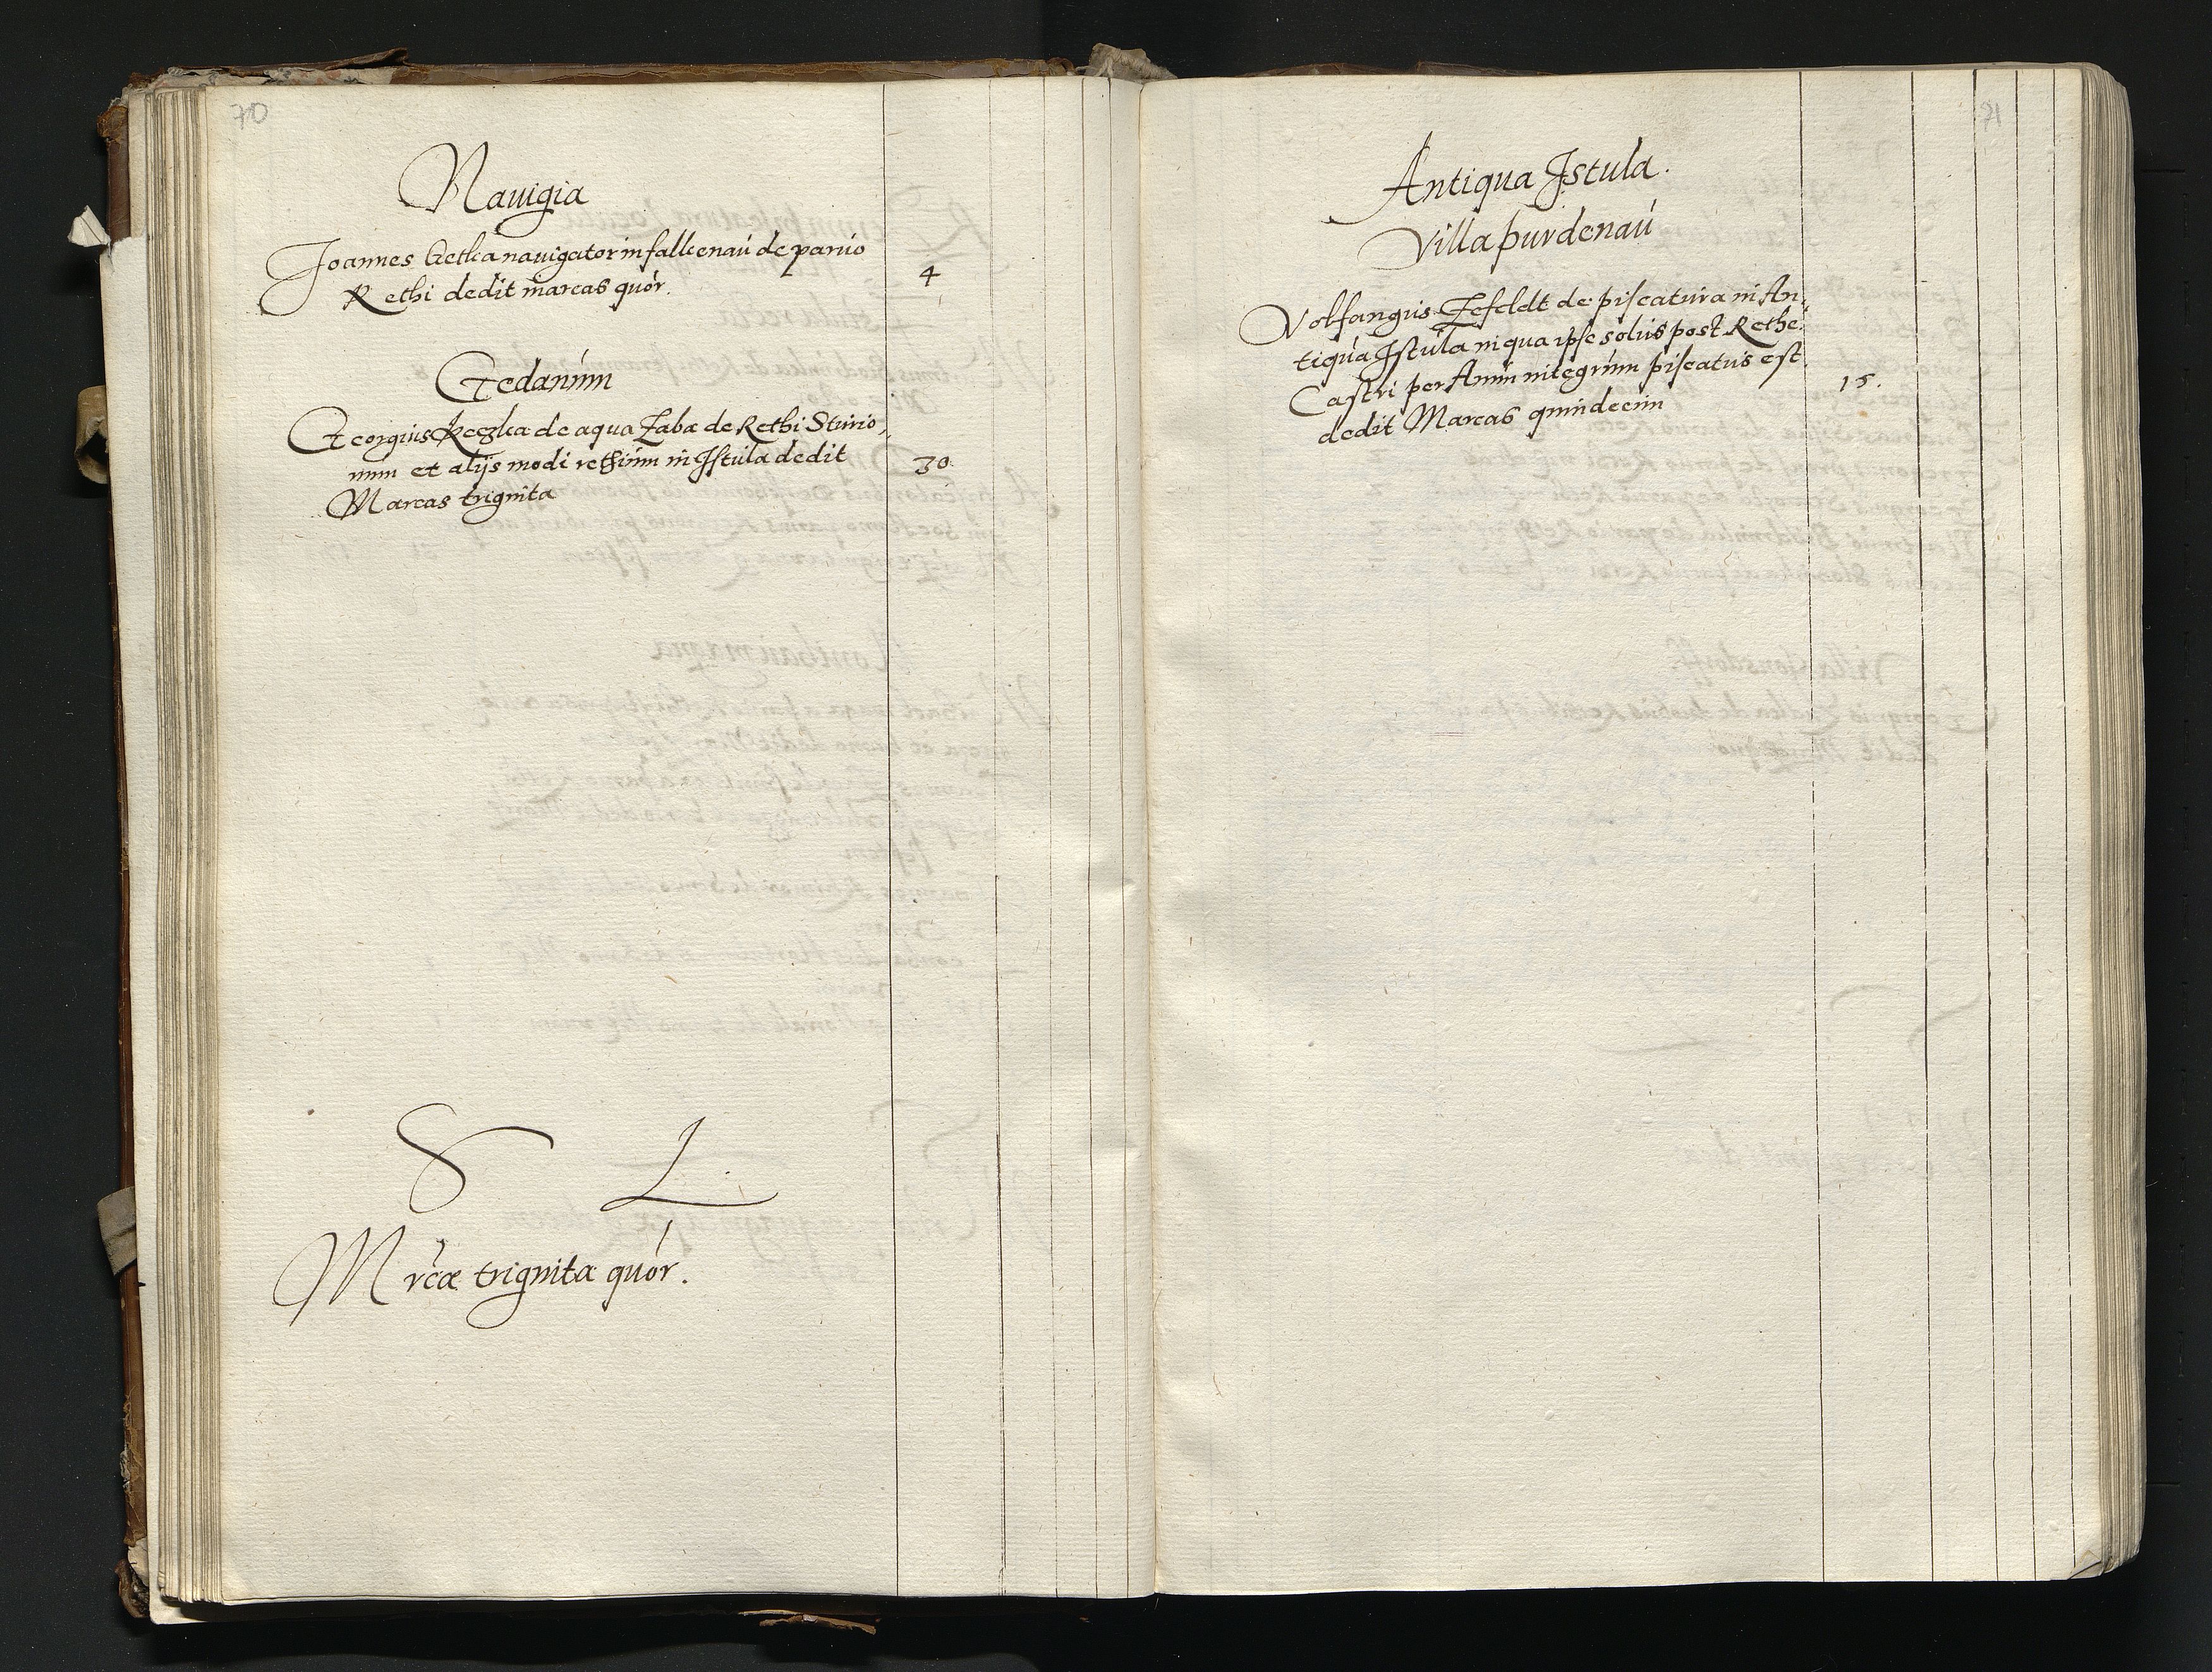 70
Nauigia
Joannes Getka nauigator in falkenaú de paruo
Rethi dedit marcas quór.
4
Gedanúm
Georgius Reczka de aqua Zaba de Rethi Sturio,
num et alijs modi rethium in Jstula dedit
Marcas trignita
30.
S L
Mrcæ trignita quór.
71
Antiqua Jstula.
Villa purdenaú
Volfangus Zefeldt de piscatura in An,
tiqua Jstula in qua ipse solus post Rethe
Castri per Annú integrúm piscatus est
dedit Marcas quindecim
15.